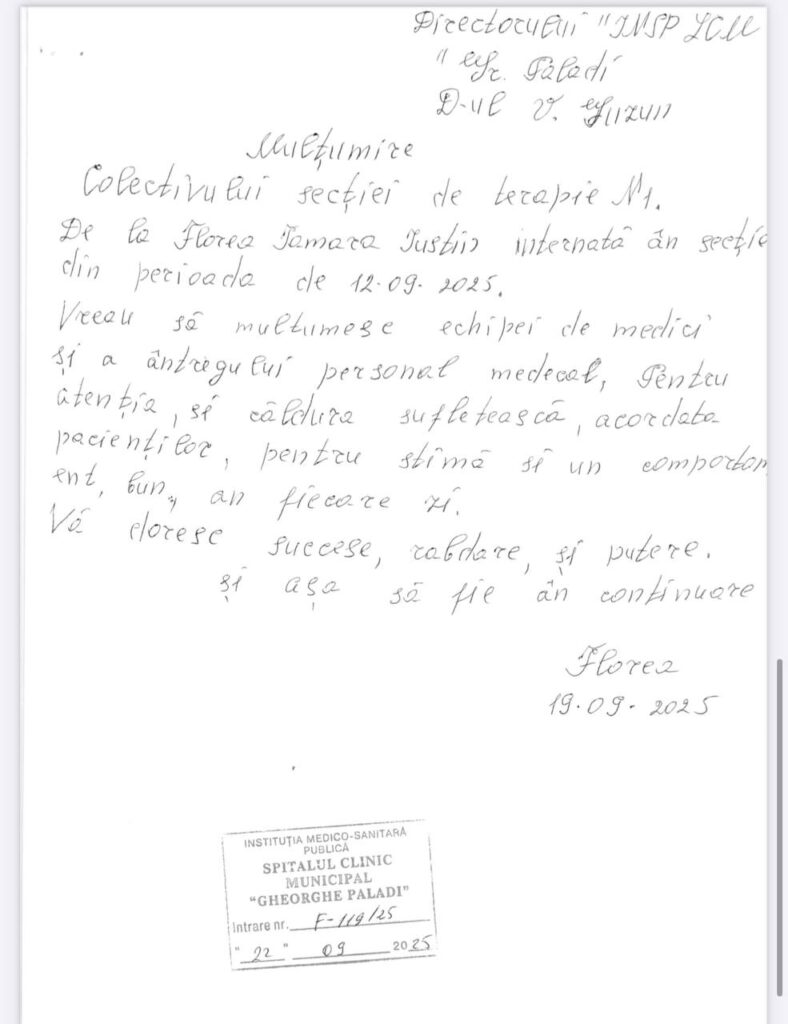 Directorului "IMSP SCM
"Gr. Paladi
D-ul V. Guzun
Mulțumire
Colectivului secției de terapie N1.
De la Florea Tamara Iustin internată ân secție
din perioada de 12.09.2025.
Vreau să multumesc echipei de medici
și a ântregului personal medecal, Pentru
atenția, și căldura sufletească, acordata
pacienților, pentru stimă si un comportam
ent, bun, an fiecare zi.
Vă doresc succese, rabdare, și putere.
și așa să fie ân continuare
Florea
19.09.2025
INSTITUȚIA MEDICO-SANITARĂ
PUBLICĂ
SPITALUL CLINIC
MUNICIPAL
"GHEORGHE PALADI"
Intrare nr. F-119/25
"22" 09 2025